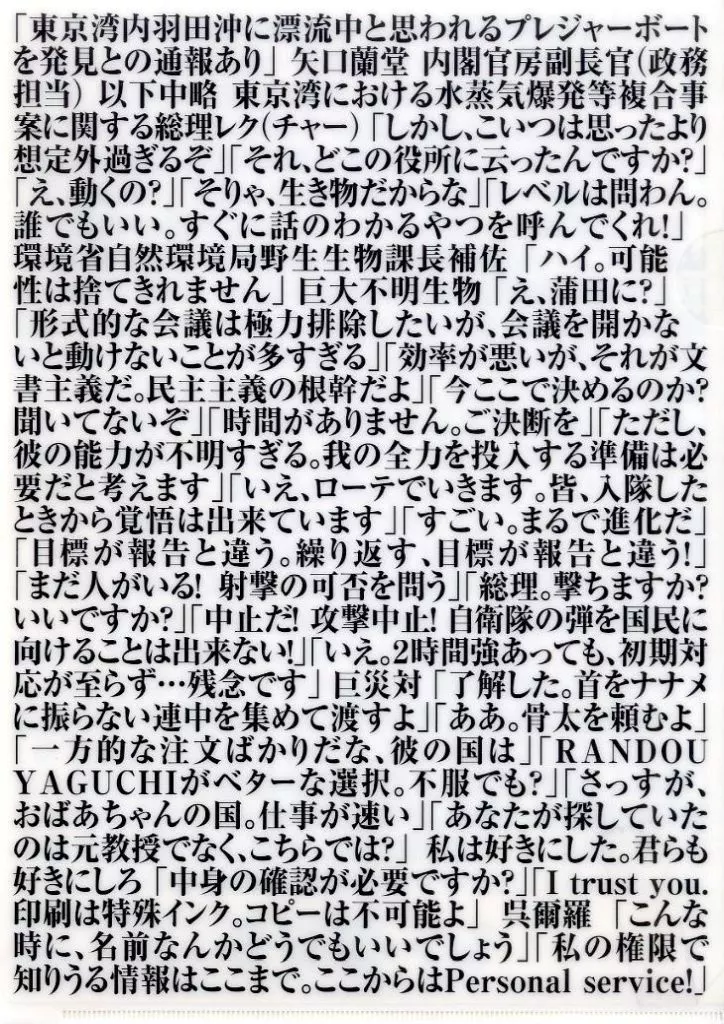 「東京湾内羽田沖に漂流中と思われるプレジャーボート
を発見との通報あり」 矢口蘭堂 内閣官房副長官(政務
担当) 以下中略 東京湾における水蒸気爆発等複合事
案に関する総理レク(チャー)「しかし、こいつは思ったより
想定外過ぎるぞ」「それ、どこの役所に云ったんですか?」
「え、動くの?」「そりゃ、生き物だからな」「レベルは問わん。
誰でもいい。すぐに話のわかるやつを呼んでくれ!」
環境省自然環境局野生生物課長補佐 「ハイ。可能
性は捨てきれません」 巨大不明生物 「え、蒲田に?」
「形式的な会議は極力排除したいが、会議を開かな
いと動けないことが多すぎる」「効率が悪いが、それが文
書主義だ。民主主義の根幹だよ」「今ここで決めるのか?
聞いてないぞ」「時間がありません。ご決断を」「ただし、
彼の能力が不明すぎる。我の全力を投入する準備は必
要だと考えます」「いえ、ローテでいきます。皆、入隊した
ときから覚悟は出来ています」「すごい。まるで進化だ」
「目標が報告と違う。繰り返す、目標が報告と違う!」
「まだ人がいる! 射撃の可否を問う」「総理。撃ちますか?
いいですか?」「中止だ! 攻撃中止! 自衛隊の弾を国民に
向けることは出来ない!」「いえ。2時間強あっても、初期対
応が至らず…残念です」 巨災対 「了解した。首をナナメ
に振らない連中を集めて渡すよ」「ああ。骨太を頼むよ」
「一方的な注文ばかりだな、彼の国は」「RANDOU
YAGUCHIがベターな選択。不服でも?」「さっすが、
おばあちゃんの国。仕事が速い」「あなたが探していた
のは元教授でなく、こちらでは?」 私は好きにした。君らも
好きにしろ 「中身の確認が必要ですか?」「I trust you.
印刷は特殊インク。コピーは不可能よ」 呉爾羅 「こんな
時に、名前なんかどうでもいいでしょう」「私の権限で
知りうる情報はここまで。ここからはPersonal service!」